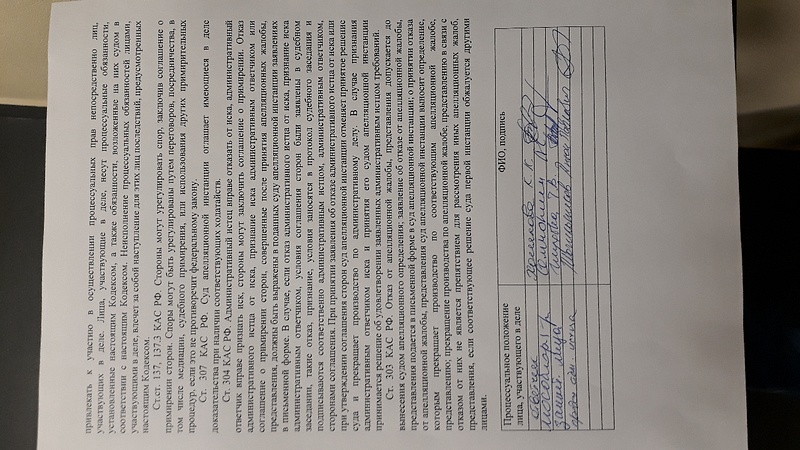 привлекать к участию в осуществлении процессуальных прав непосредственно лиц,
участвующих в деле. Лица, участвующие в деле, несут процессуальные обязанности,
установленные настоящим Кодексом, а также обязанности, возложенные на них судом в
соответствии с настоящим Кодексом. Неисполнение процессуальных обязанностей лицами,
участвующими в деле, влечет за собой наступление для этих лиц последствий, предусмотренных
настоящим Кодексом.
Ст.ст. 137, 137.3 КАС РФ. Стороны могут урегулировать спор, заключив соглашение о
примирении сторон. Споры могут быть урегулированы путем переговоров, посредничества, в
том числе медиации, судебного примирения, или использования других примирительных
процедур, если это не противоречит федеральному закону
Ст. 307 КАС РФ. Суд апелляционной инстанции оглашает имеющиеся в деле
доказательства при наличии соответствующих ходатайств.
Ст. 304 КАС РФ. Административный истец вправе отказать от иска, административный
ответчик вправе признать иск, стороны могут заключить соглашение о примирении. Отказ
административного истца от иска, признание иска административным ответчиком или
соглашение о примирении сторон, совершенные после принятия апелляционных жалобы,
представления, должны быть выражены в поданных суду апелляционной инстанции заявлениях
в письменной форме. В случае, если отказ административного истца от иска, признание иска
административным ответчиком, условия соглашения сторон были заявлены в судебном
заседании, такие отказ, признание, условия заносятся в протокол судебного заседания и
подписываются соответственно административным истцом, административным ответчиком,
сторонами соглашения. При принятии заявления об отказе административного истца от иска или
при утверждении соглашения сторон суд апелляционной инстанции отменяет принятое решение
суда и прекращает производство по административному делу. В случае признания
административным ответчиком иска и принятия его судом апелляционной инстанции
принимается решение об удовлетворении заявленных административным истцом требований.
Ст. 303 КАС РФ. Отказ от апелляционной жалобы, представления допускается до
вынесения судом апелляционного определения; заявление об отказе от апелляционной жалобы,
представления подается в письменной форме в суд апелляционной инстанции; о принятии отказа
от апелляционной жалобы, представления суд апелляционной инстанции выносит определение,
которым прекращает производство по соответствующим апелляционной жалобе,
представлению; прекращение производства по апелляционной жалобе, представлению в связи с
отказом от них не является препятствием для рассмотрения иных апелляционных жалоб,
представления, если соответствующее решение суда первой инстанции обжалуется другими
лицами.
Процессуальное положение
лица, участвующего в деле
ФИО, подпись